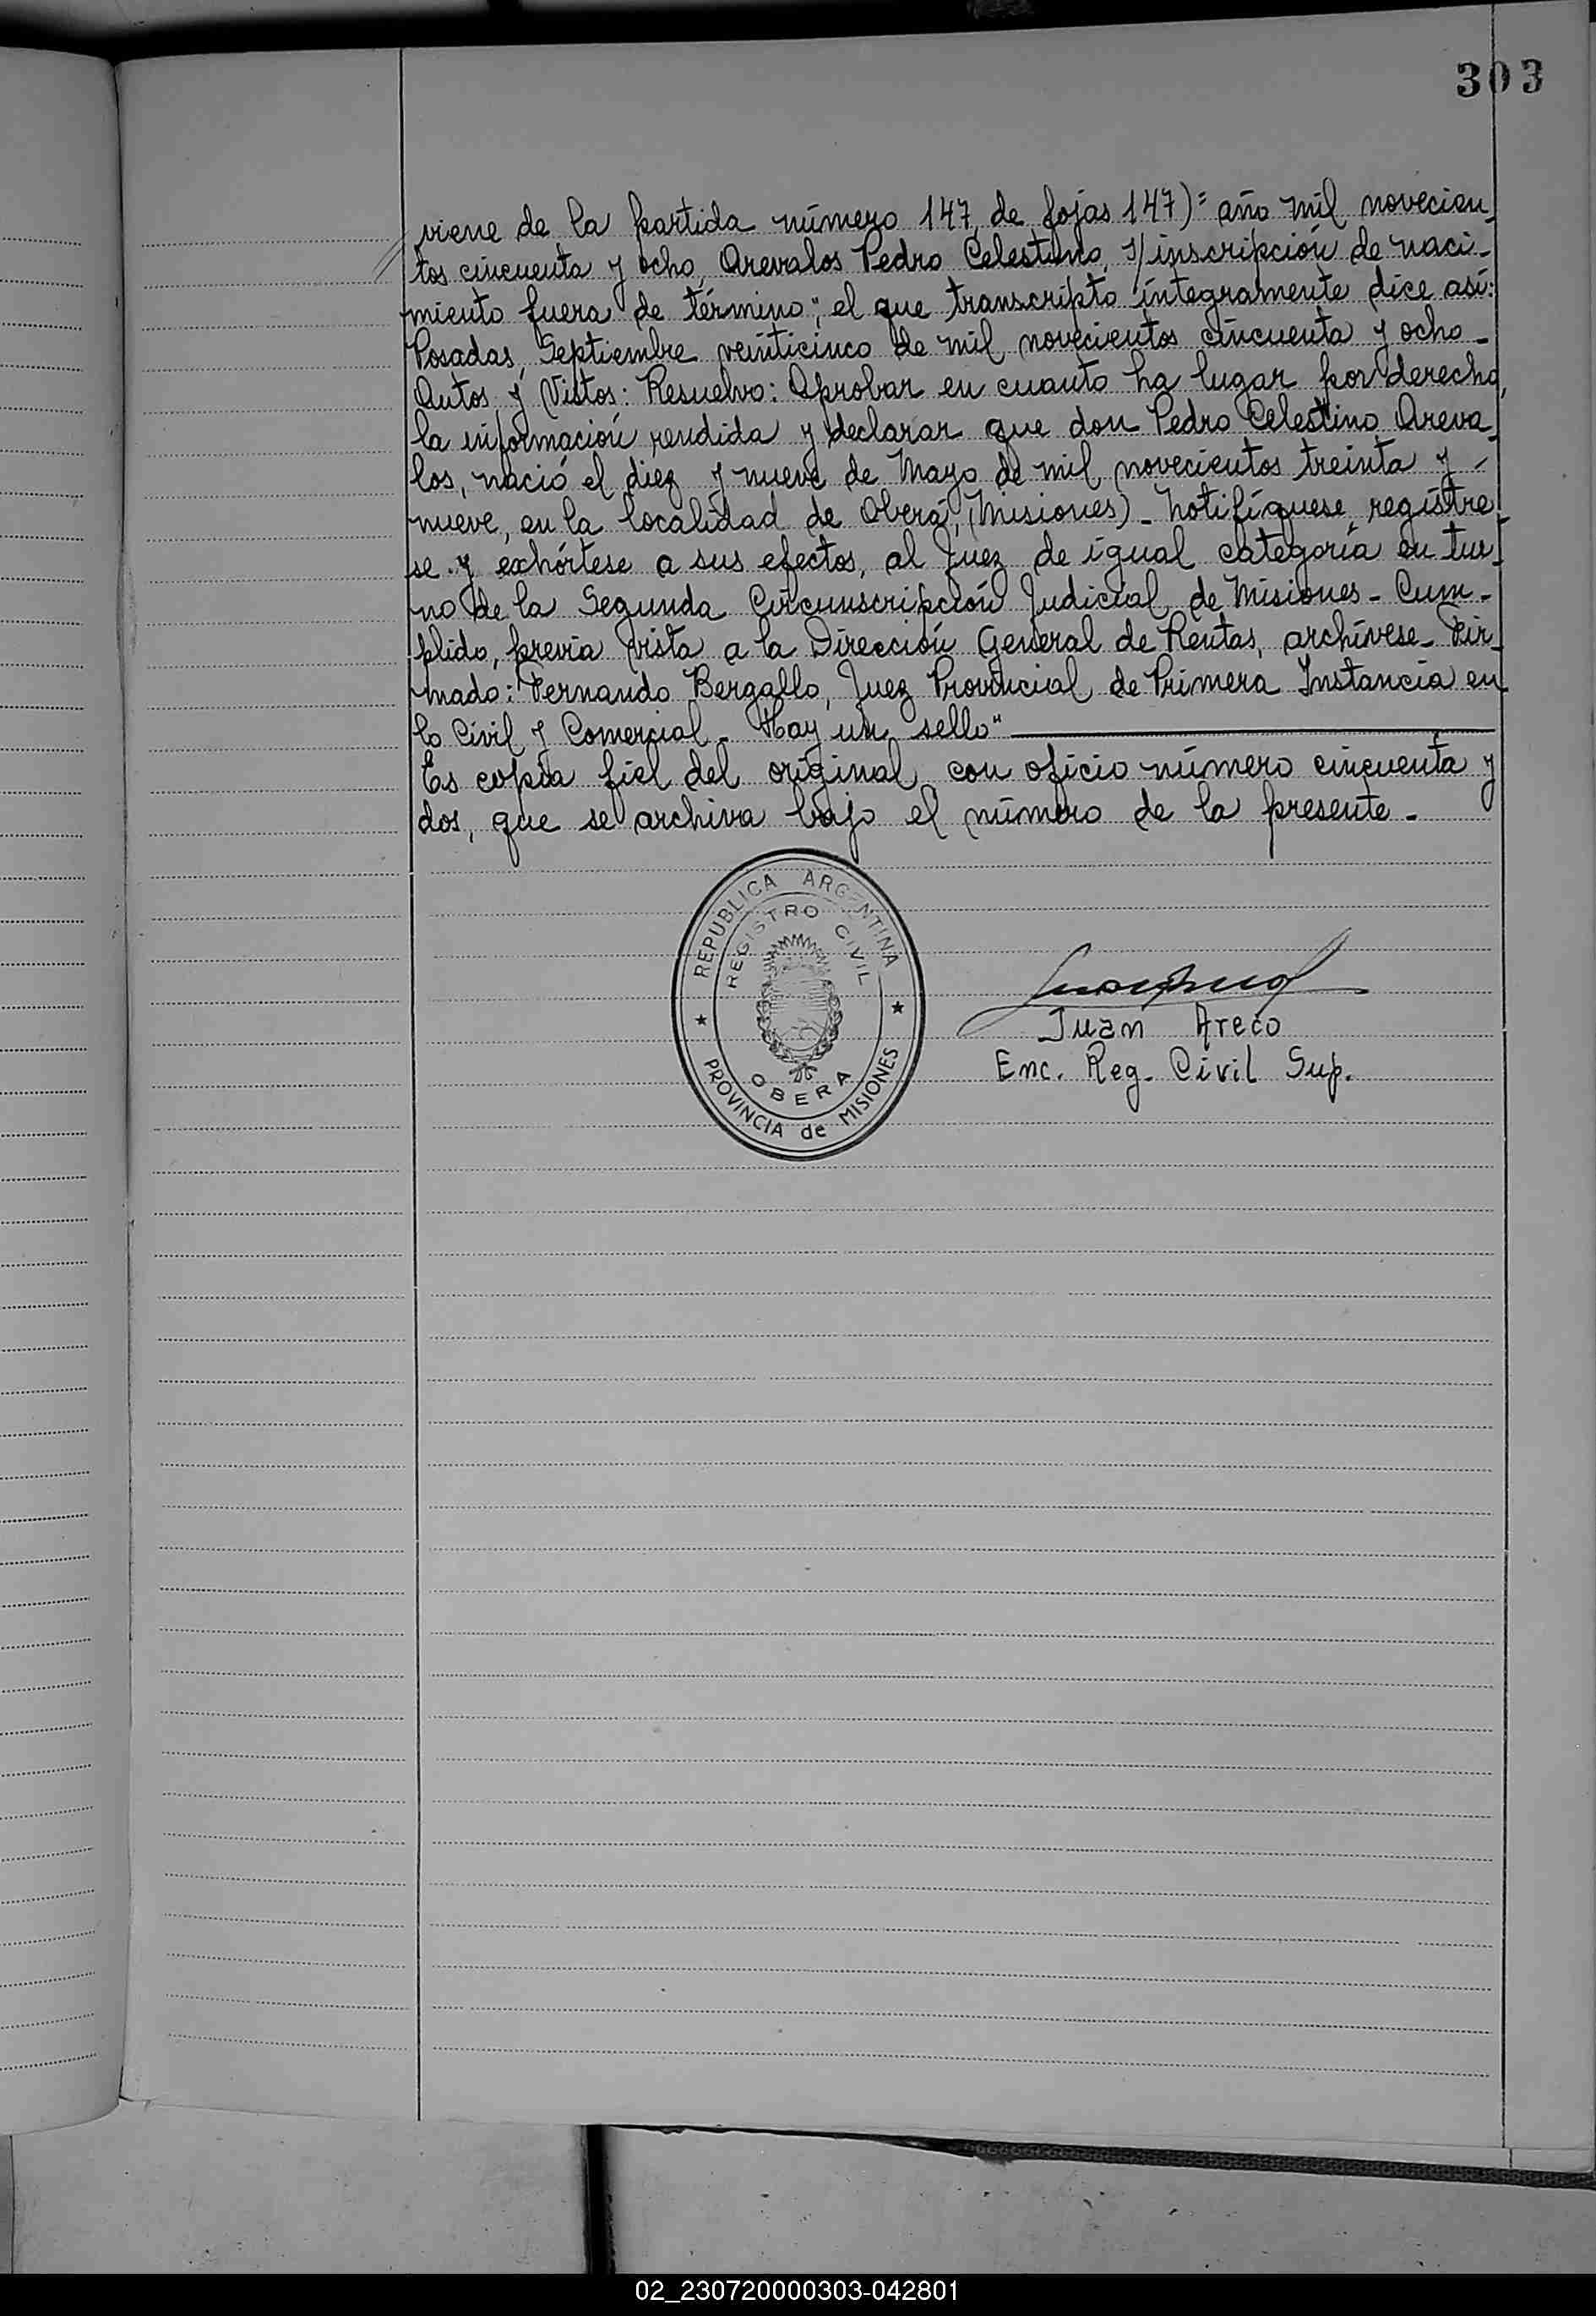 303
viene de la partida número 147, de fojas 147)= año mil novecien-
tos cincuenta y ocho, Arevalos Pedro Celestino, s/inscripción de naci-
miento fuera de término", el que transcripto íntegramente dice así:
Posadas, Septiembre veinticinco de mil novecientos cincuenta y ocho-
Autos y Vistos: Resuelvo: Aprobar en cuanto ha lugar por derecho,
la información rendida y declarar que don Pedro Celestino Areva-
los, nació el diez y nueve de Mayo de mil novecientos treinta y -
nueve, en la localidad de Oberá, (Misiones)- Notifíquese, regístre-
se y exhórtese a sus efectos, al Juez de igual categoría en tur-
no de la Segunda Circunscripción Judicial de Misiones- Cum-
plido, previa vista a la Dirección General de Rentas, archívese- Fir-
mado: Fernando Bergallo, Juez Provincial de Primera Instancia en
lo Civil y Comercial- Hay un sello"
Es copia fiel del original, con oficio número cincuenta y
dos, que se archiva bajo el número de la presente-
REPUBLICA ARGENTINA
REGISTRO CIVIL
OBERA
PROVINCIA de MISIONES
Juan Areco
Enc. Reg. Civil Sup.
02_230720000303-042801